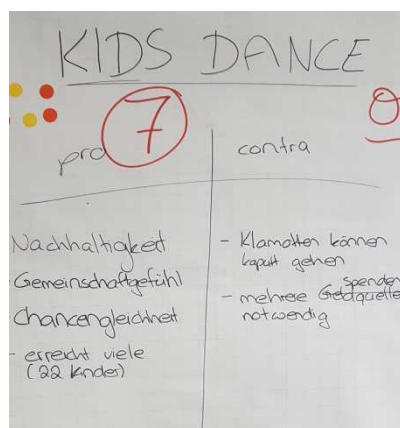 KIDS DANCE
7
0
pro
contra
Nachhaltigkeit
Gemeinschaftgefühl
Chancengleichheit
- erreicht viele
(22 Kinder)
- Klamotten können
kaputt gehen
spenden
- mehrere Geldquelle
notwendig